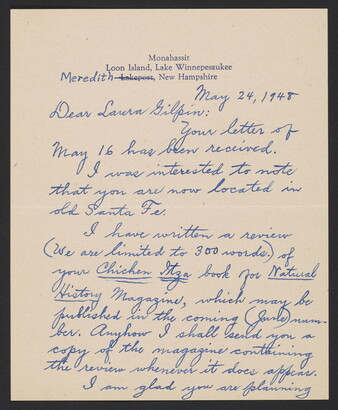 Monahassit
Loon Island, Lake Winnepesaukee
Meredith Lakeport, New Hampshire
May 24, 1948
Dear Laura Gilpin:
Your letter of
May 16 has been received.
I was interested to note
that you are now located in
old Santa Fe.
I have written a review
(We are limited to 300 words.) of
your Chichen Itza book for Natural
History Magazine, which may be
published in the coming (June) num-
ber. Anyhow I shall send you a
copy of the magazine containing
the review whenever it does appear.
I am glad you are planning